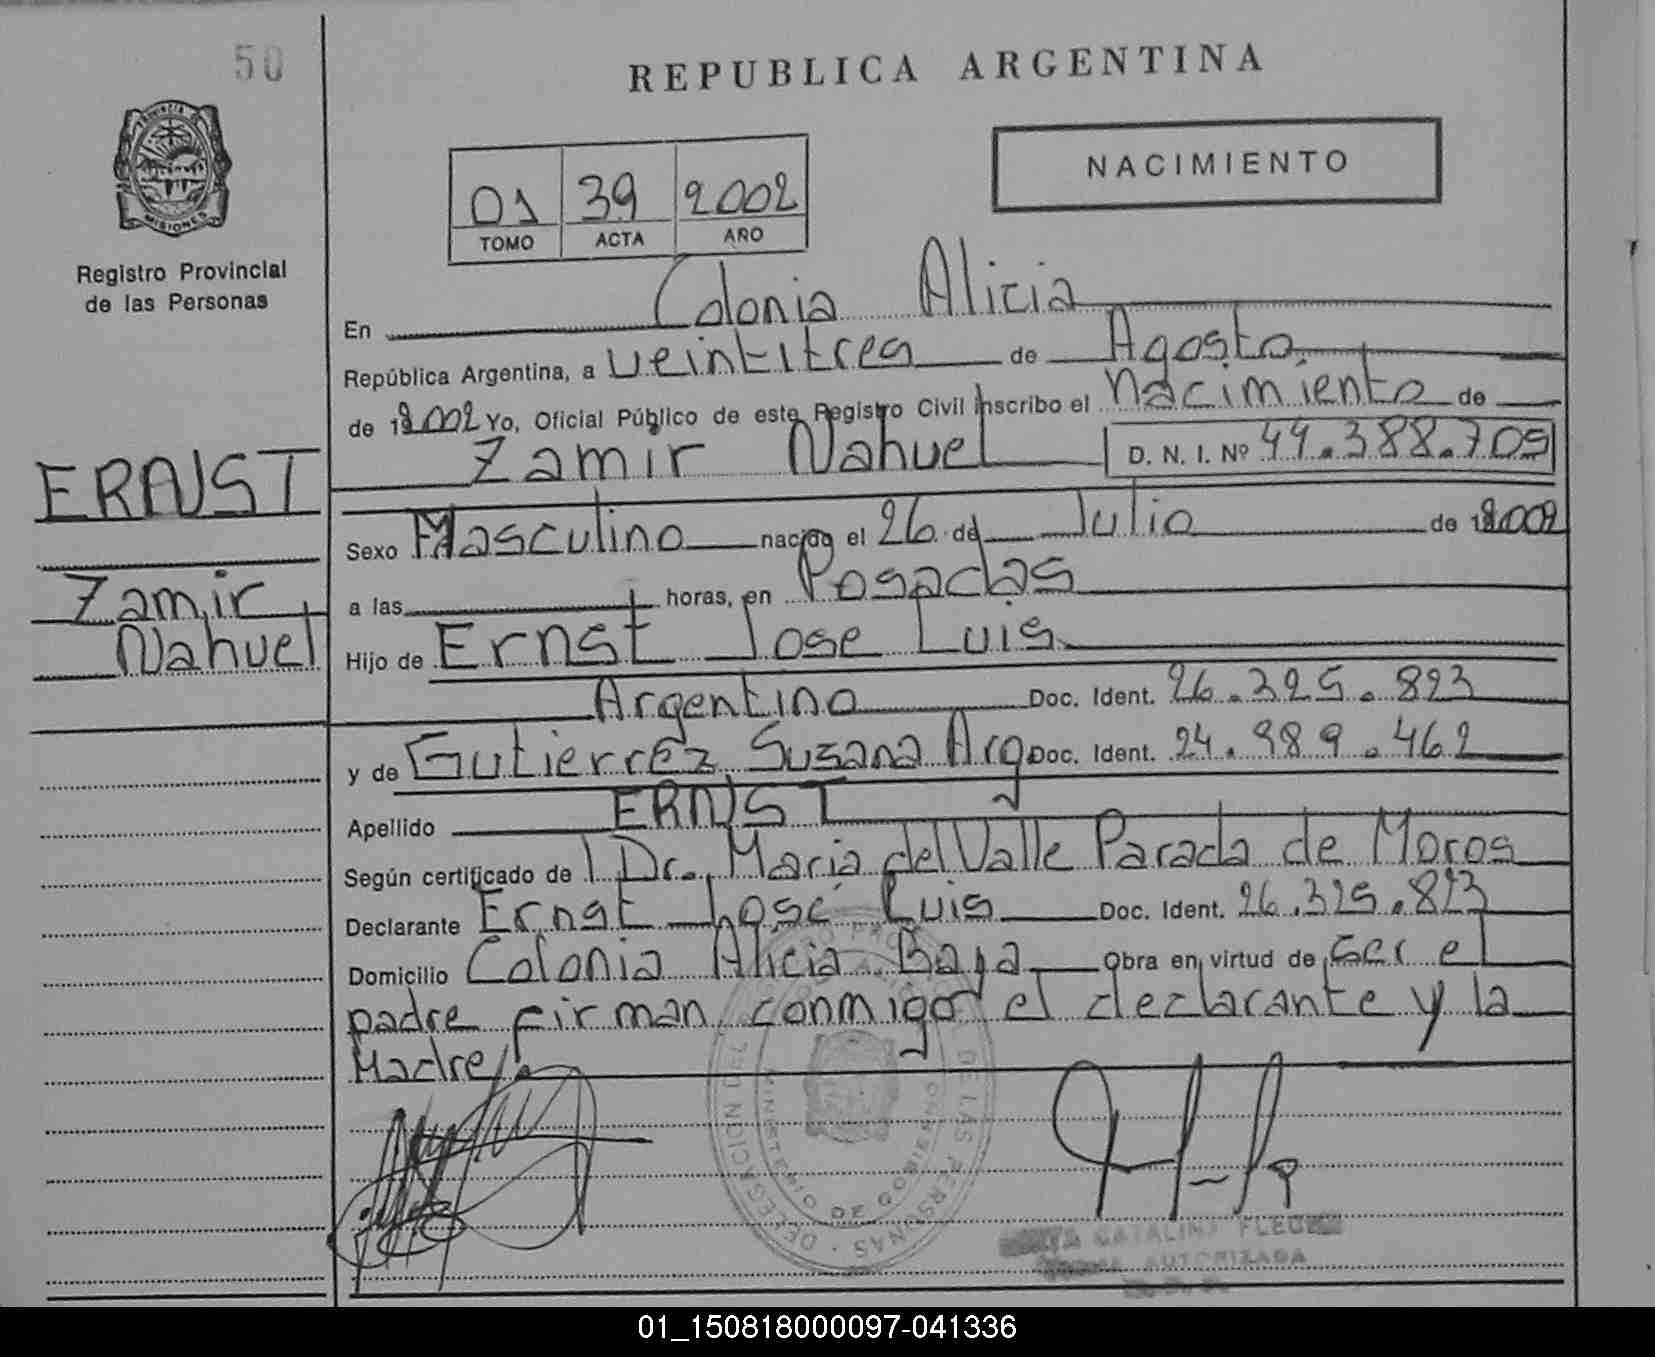 50
REPUBLICA ARGENTINA
PROVINCIA DE
MISIONES
Registro Provincial
de las Personas
NACIMIENTO
01 39 2002
TOMO ACTA AÑO
En Colonia Alicia
República Argentina, a veintitres de Agosto
de 2002 Yo, Oficial Público de este Registro Civil inscribo el nacimiento de
Zamir Nahuel D. N. I. Nº 44.388.705
ERNST
Zamir
Nahuel
Sexo Masculino nacido el 26 de Julio de 2002
a las horas, en Posadas
Hijo de Ernst Jose Luis
Argentino Doc. Ident. 26.325.823
y de Gutierrez Susana Arg Doc. Ident. 24.989.462
Apellido ERNST
Según certificado de Dr. Maria del Valle Parada de Moros
Declarante Ernst José Luis Doc. Ident. 26.325.823
Domicilio Colonia Alicia Baja Obra en virtud de ser el
padre firman conmigo el declarante y la
Madre
DELEGACION DEL DE LAS PERSONAS
MINISTERIO DE GOBIERNO
CATALINA
AUTORIZADA
01_150818000097-041336